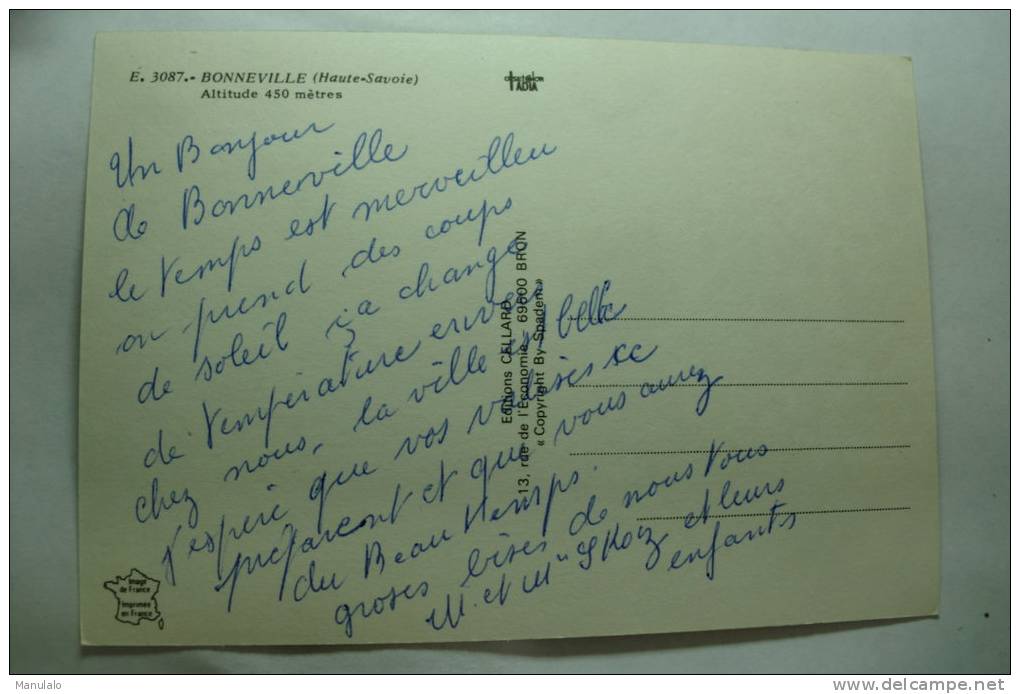 E. 3087.- BONNEVILLE (Haute-Savoie)
Altitude 450 mètres
COMBIER IMP
Un Bonjour
de Bonneville
le temps est merveilleu
on prend des coups
de soleil ça change
de température
chez nous, la ville est belle
j'esperé que vos valises se
préparent et que vous aurez
du Beau temps.
groses bises de nous tous
M. et Mm et leurs
enfants
Editions CELLARD
13, rue de l'Economie - 69500 BRON
« Copyright By Spadem »
Image
de France
Imprimée
en France
Manulalo
www.delcampe.net